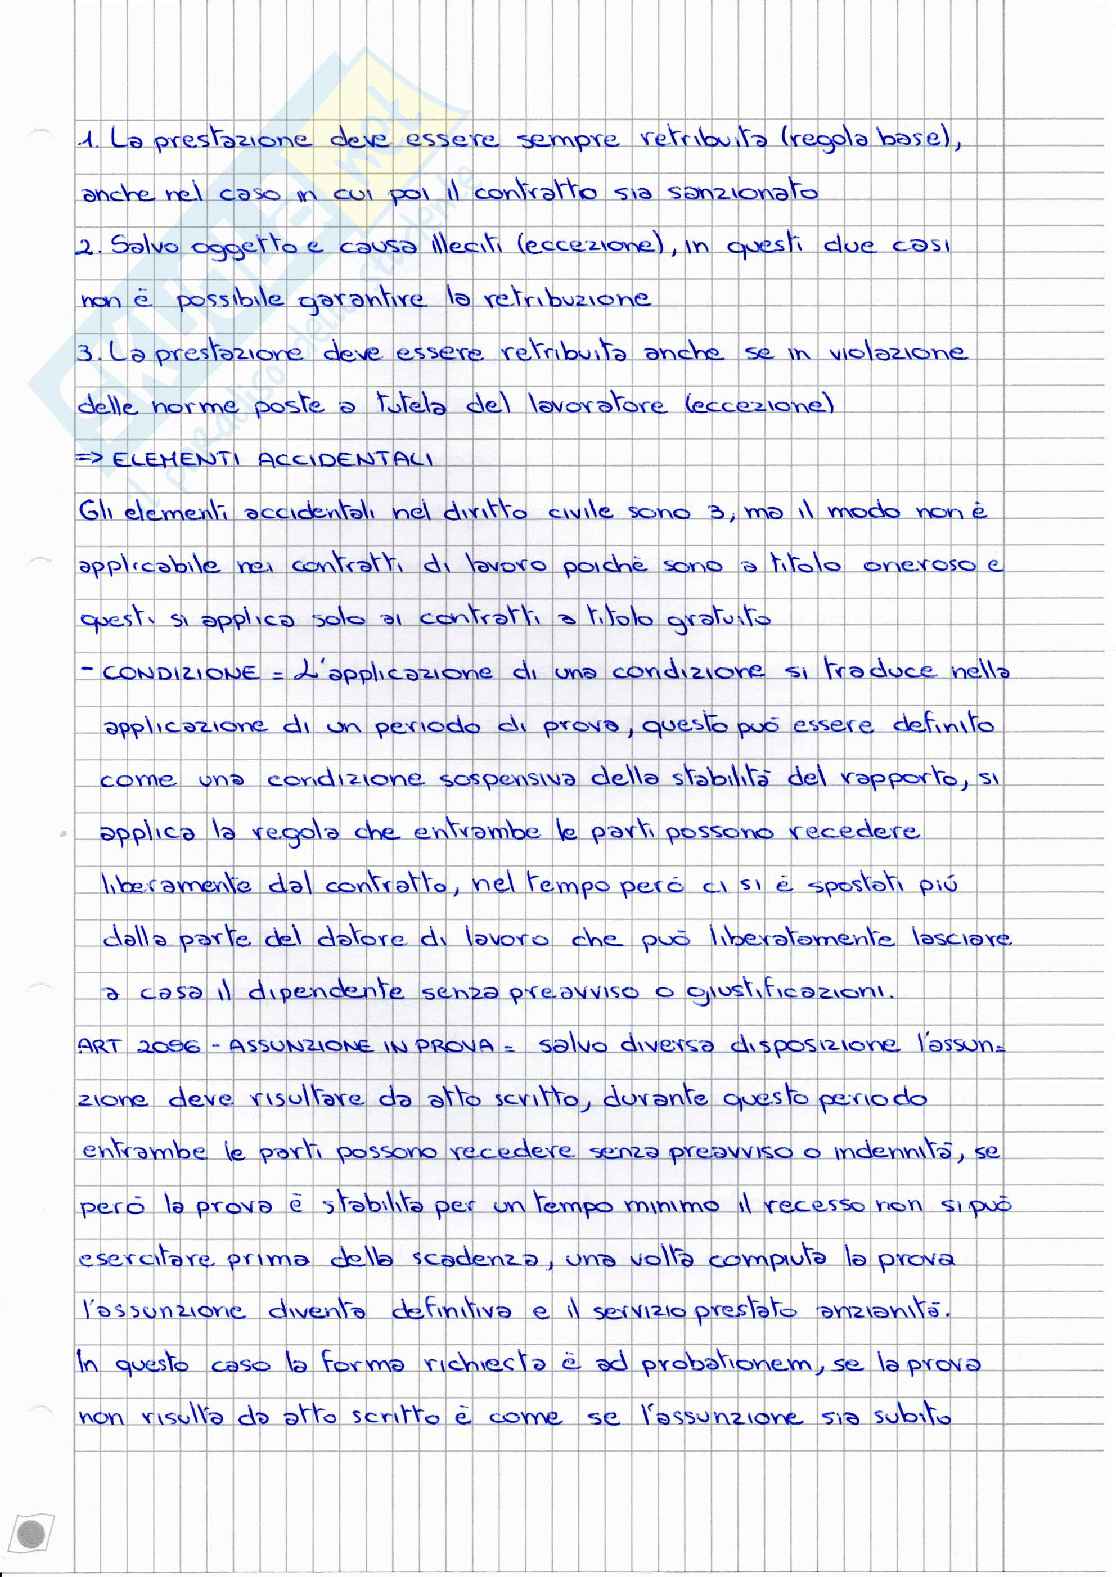 1. La prestazione deve essere sempre retribuita (regola base),
anche nel caso in cui poi il contratto sia sanzionato
2. Salvo oggetto e causa illeciti (eccezione), in questi due casi
non è possibile garantire la retribuzione
3. La prestazione deve essere retribuita anche se in violazione
delle norme poste a tutela del lavoratore (eccezione)
=> ELEMENTI ACCIDENTALI
Gli elementi accidentali nel diritto civile sono 3, ma il modo non è
applicabile nei contratti di lavoro poichè sono a titolo oneroso e
questi si applica solo ai contratti a titolo gratuito
- CONDIZIONE = L'applicazione di una condizione si traduce nella
applicazione di un periodo di prova, questo può essere definito
come una condizione sospensiva della stabilità del rapporto, si
applica la regola che entrambe le parti possono recedere
liberamente dal contratto, nel tempo però ci si è spostati più
dalla parte del datore di lavoro che può liberatamente lasciare
a casa il dipendente senza preavviso o giustificazioni.
ART 2096 - ASSUNZIONE IN PROVA = salvo diversa disposizione l'assun=
zione deve risultare da atto scritto, durante questo periodo
entrambe le parti possono recedere senza preavviso o indennità, se
però la prova è stabilita per un tempo minimo il recesso non si può
esercitare prima della scadenza, una volta compiuta la prova
l'assunzione diventa definitiva e il servizio prestato anzianità.
In questo caso la forma richiesta è ad probationem, se la prova
non risulta da atto scritto è come se l'assunzione sia subito